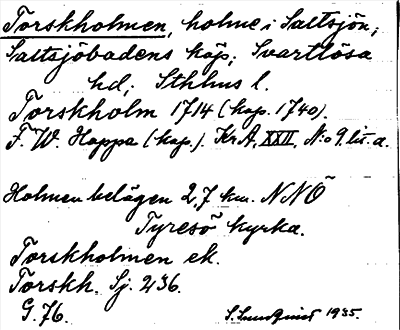 Torskholmen, holme i Saltsjön;
Saltsjöbadens köp; Svartlösa
hd; Sthlms l.
Torskholm 1714 (kop. 1740).
F. W. Hoppe (kop.). KrA, XXII, N:o 9. lit. a.
Holmen belägen 2,7 km. NNÖ
Tyresö kyrka.
Torskholmen ek.
Torskh. Sj. 236.
G. 76. S. Lundquist 1935.